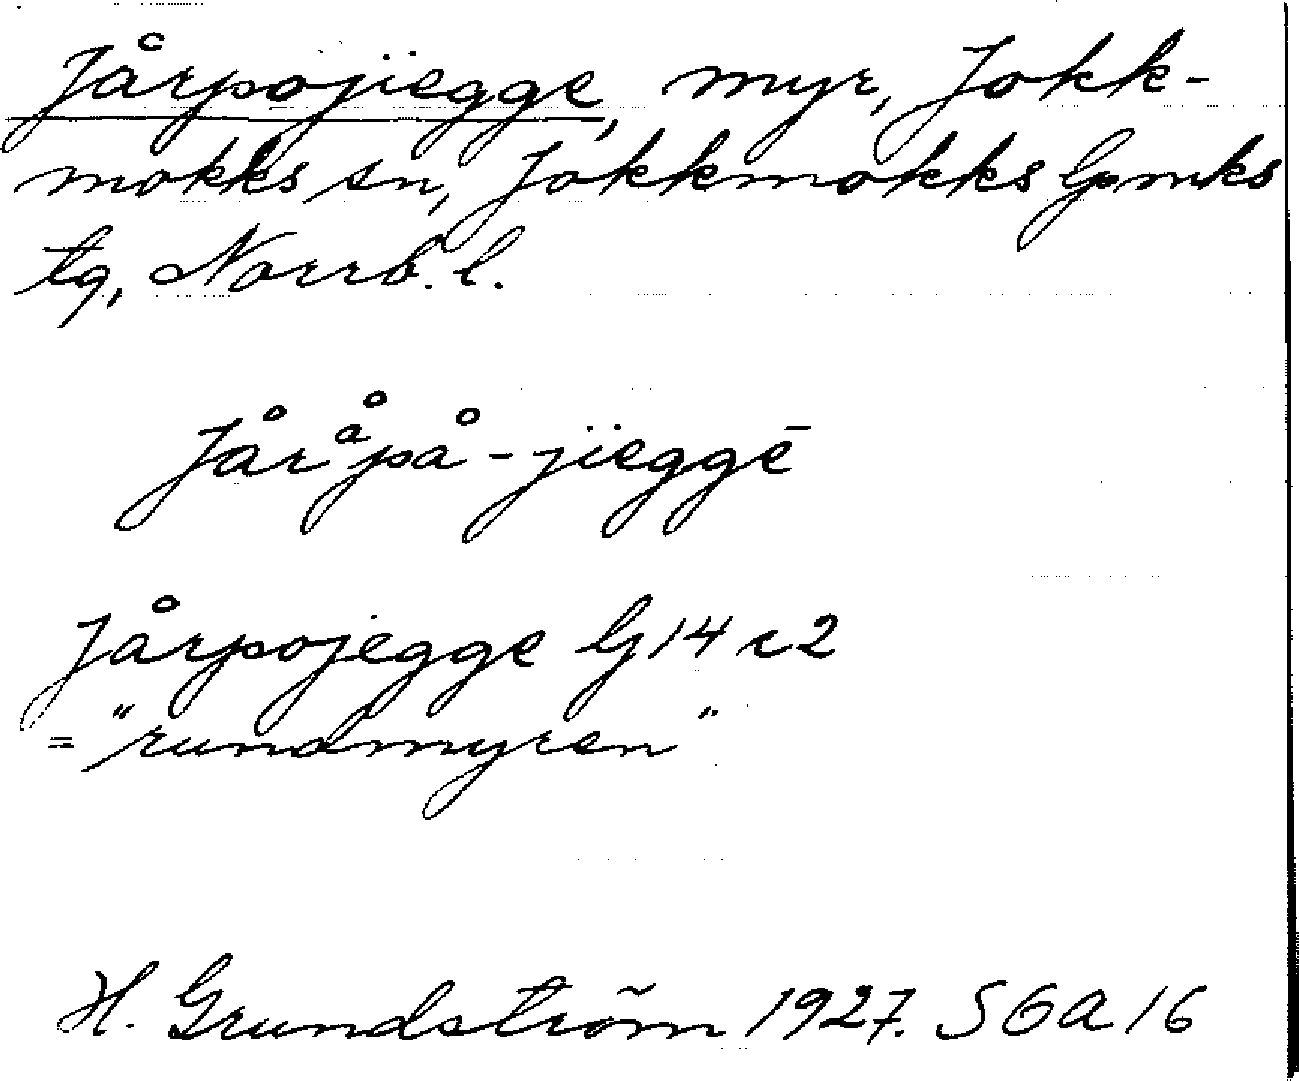 Jårpojiegge, myr, Jokk-
mokks sn, Jokkmokks lpmks
tg, Norrb. l.
Jårᵃ̊på-jieggē
Jårpojegge G14 r2
= "rundmyren"
H. Grundström 1927. SGA 16